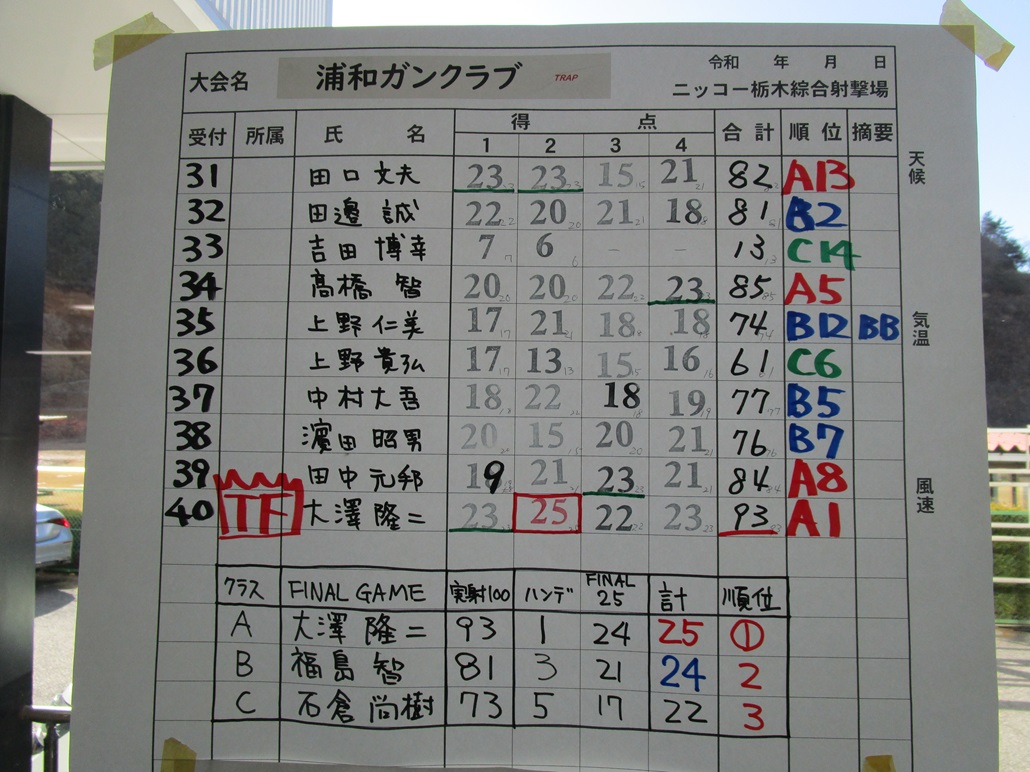 大会名 浦和ガンクラブ TRAP 令和 年 月 日
ニッコー栃木綜合射撃場
受付 所属 氏 名 得 点 合計 順位 摘要
1 2 3 4
天候
31 田口文夫 23 23 15 21 82 A13
32 田邉誠 22 20 21 18 81 B2
33 吉田博幸 7 6 - - 13 C14
34 髙橋智 20 20 22 23 85 A5
気温
35 上野仁美 17 21 18 18 74 B12 BB
36 上野貴弘 17 13 15 16 61 C6
37 中村大吾 18 22 18 19 77 B5
38 濵田昭男 20 15 20 21 76 B7
風速
39 田中元邦 19 21 23 21 84 A8
40 TF 大澤隆二 23 25 22 23 93 A1
クラス FINAL GAME 実射100 ハンデ FINAL 25 計 順位
A 大澤隆二 93 1 24 25 ①
B 福島智 81 3 21 24 2
C 石倉尚樹 73 5 17 22 3